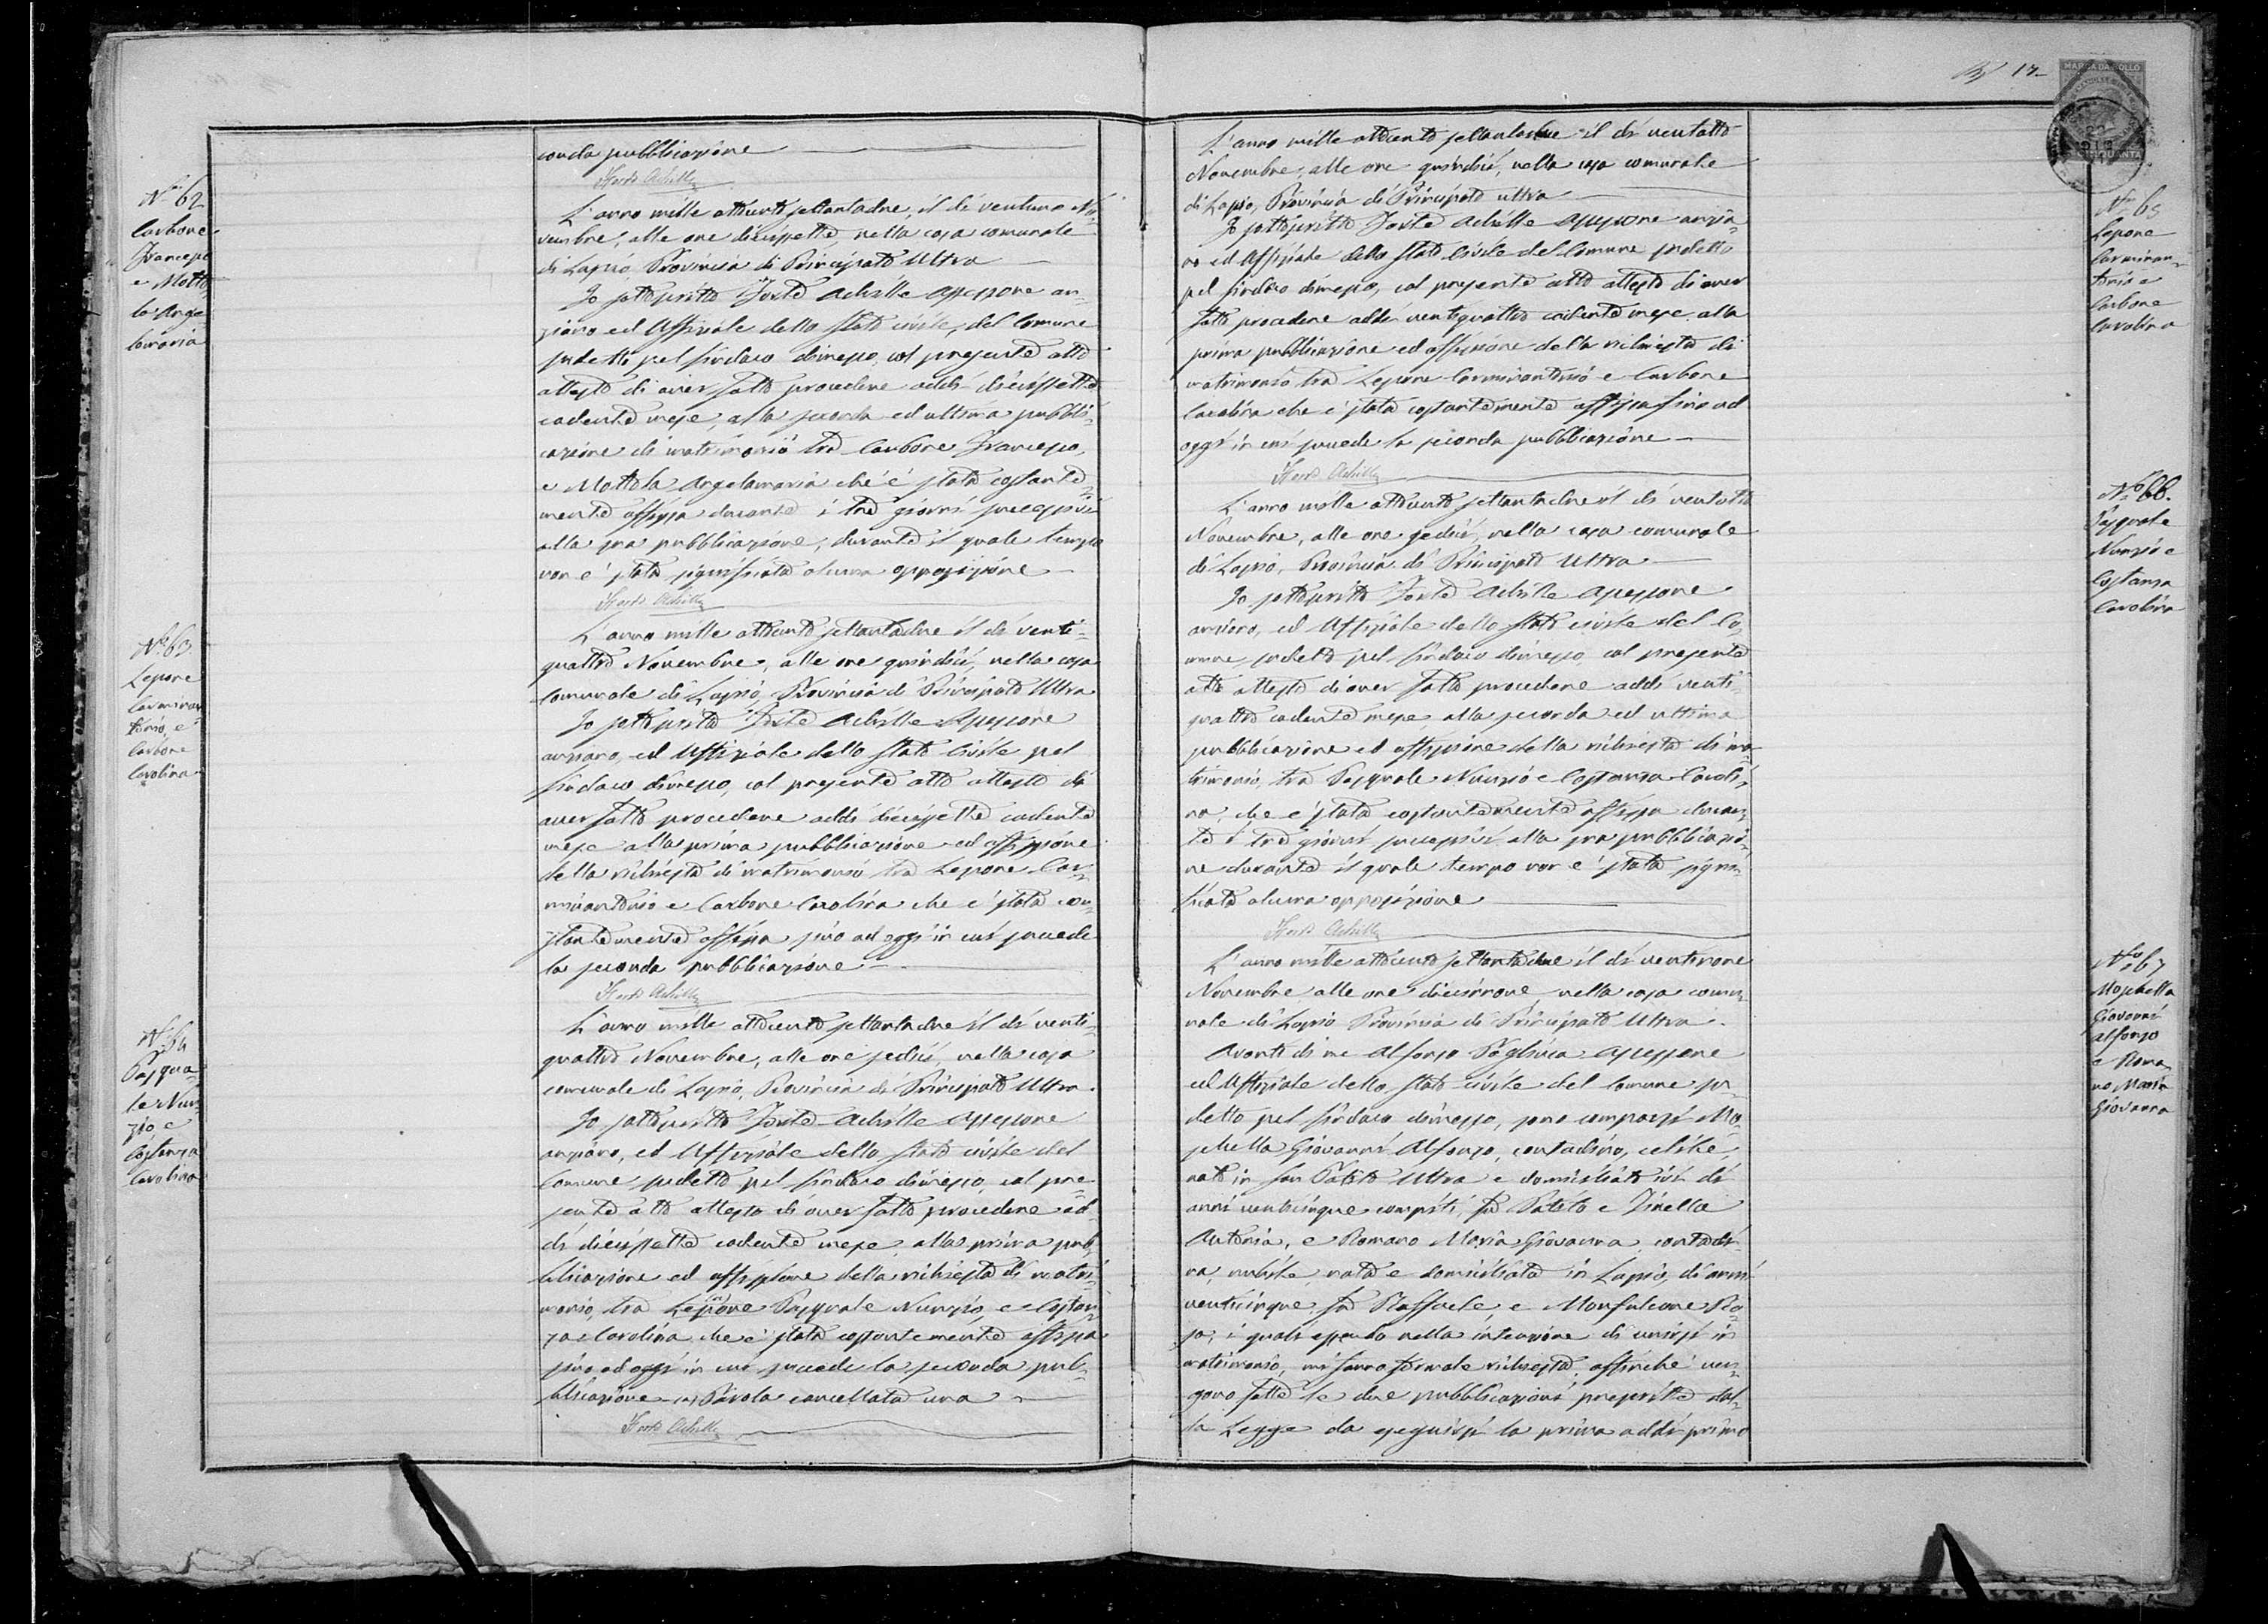 conda pubblicazione
Forte Achille
N.° 62
Carbone
Francesco
e Motto
la Ange
lamaria
L'anno mille ottocento settantadue, il dì ventuno No
vembre, alle ore diciassette, nella casa comunale
di Lapio Provincia di Principato Ultra
Io sottoscritto Forte Achille Assessore an
ziano ed Uffiziale dello Stato civile, del Comune
sudetto pel Sindaco dimesso, col presente atto
attesto di aver fatto procedere addì diciassette
cadente mese, alla seconda ed ultima pubbli
cazione di matrimonio tra Carbone Francesco,
e Mottola Angelamaria che è stata costante
mente affissa durante i tre giorni successivi
alla sra pubblicazione, durante il quale tempo
non è stata significata alcuna opposizione
Forte Achille
N.° 63
Lepore
Carminan
tonio, e
Carbone
Carolina
L'anno mille ottocento settantadue il dì venti=
quattro Novembre, alle ore quindici, nella casa
Comunale di Lapio, Provincia di Principato Ultra
Io sottoscritto Forte Achille Assessore
anziano, ed Uffiziale dello Stato Civile pel
Sindaco dimesso, col presente atto attesto di
aver fatto procedere addì diciassette cadente
mese alla prima pubblicazione ed affissione
della richiesta di matrimonio tra Lepore Car=
minantonio e Carbone Carolina che è stata con
stantemente affissa sino ad oggi in cui succede
la seconda pubblicazione
Forte Achille
N.° 64
Pasqua=
le Nun
zio e
Costanza
Carolina
L'anno mille ottocento settantadue il dì venti=
quattro Novembre, alle ore sedici, nella casa
comunale di Lapio, Provincia di Principato Ultra.
Io sottoscritto Forte Achille Assessore
anziano, ed Uffiziale dello Stato civile del
Comune sudetto pel Sindaco dimesso, col pre=
sente atto attesto di aver fatto procedere ad=
dì diciassette cadente mese, alla prima pub
blicazione ed affissione della richiesta di matri=
monio, tra Lepore Pasquale Nunzio, e Costan
za Carolina che è stata costantemente affissa
sino ad oggi in cui succede la seconda pub=
blicazione Parola cancellata una
Forte Achille
17
MARCA DA BOLLO
CINQUANTA
N.° 65
Lepore
Carminan=
tonio e
Carbone
Carolina
L'anno mille ottocento settantadue il dì ventotto
Novembre, alle ore quindici, nella casa comunale
di Lapio, Provincia di Principato ultra
Io sottoscritto Forte Achille Assessore anzia=
no ed Uffiziale dello Stato Civile del Comune sudetto
pel Sindaco dimesso, col presente atto attesto di aver
fatto procedere addì ventiquattro cadente mese, alla
prima pubblicazione ed affissione della richiesta di
matrimonio tra Lepore Carminantonio e Carbone
Carolina che è stata costantemente affissa sino ad
oggi in cui succede la seconda pubblicazione
Forte Achille
N.° 66.
Pasquale
Nunzio e
Costanza
Carolina
L'anno mille ottocento settantadue il dì ventotto
Novembre, alle ore sedici, nella casa comunale
di Lapio, Provincia di Principato Ultra
Io sottoscritto Forte Achille Assessore
anziano, ed Uffiziale dello Stato civile del Co
mune sudetto pel Sindaco dimesso, col presente
atto attesto di aver fatto procedere addì venti
quattro cadente mese alla seconda ed ultima
pubblicazione ed affissione della richiesta di ma
trimonio, tra Pasquale Nunzio e Costanza Caroli
na, che è stata costantemente affissa duran
te i tre giorni successivi alla sra pubblicazio
ne durante il quale tempo non è stata signi
ficata alcuna opposizione
Forte Achille
N.° 67
Moschella
Giovanni
Alfonso
e Roma
no Maria
Giovanna
L'anno mille ottocento settantadue il dì ventinove
Novembre alle ore diciannove, nella casa comu
nale di Lapio Provincia di Principato Ultra.
Avanti di me Alfonso Assessore
ed Uffiziale dello Stato civile del Comune su
detto pel Sindaco dimesso, sono comparsi Mo
schella Giovanni Alfonso, contadino, celibe,
nato in San Potito Ultra e domiciliato ivi di
anni venticinque compiti, fu Potito e
Antonia, e Romano Maria Giovanna contadi
na, nubile, nata e domiciliata in Lapio, di anni
venticinque fu Raffaele, e Monfalcone Ro
sa; i quali essendo nella intenzione di unirsi in
matrimonio, mi fanno formale richiesta, affinché ven
gano fatte le due pubblicazioni prescritte dal
la Legge da eseguirsi la prima addì primo